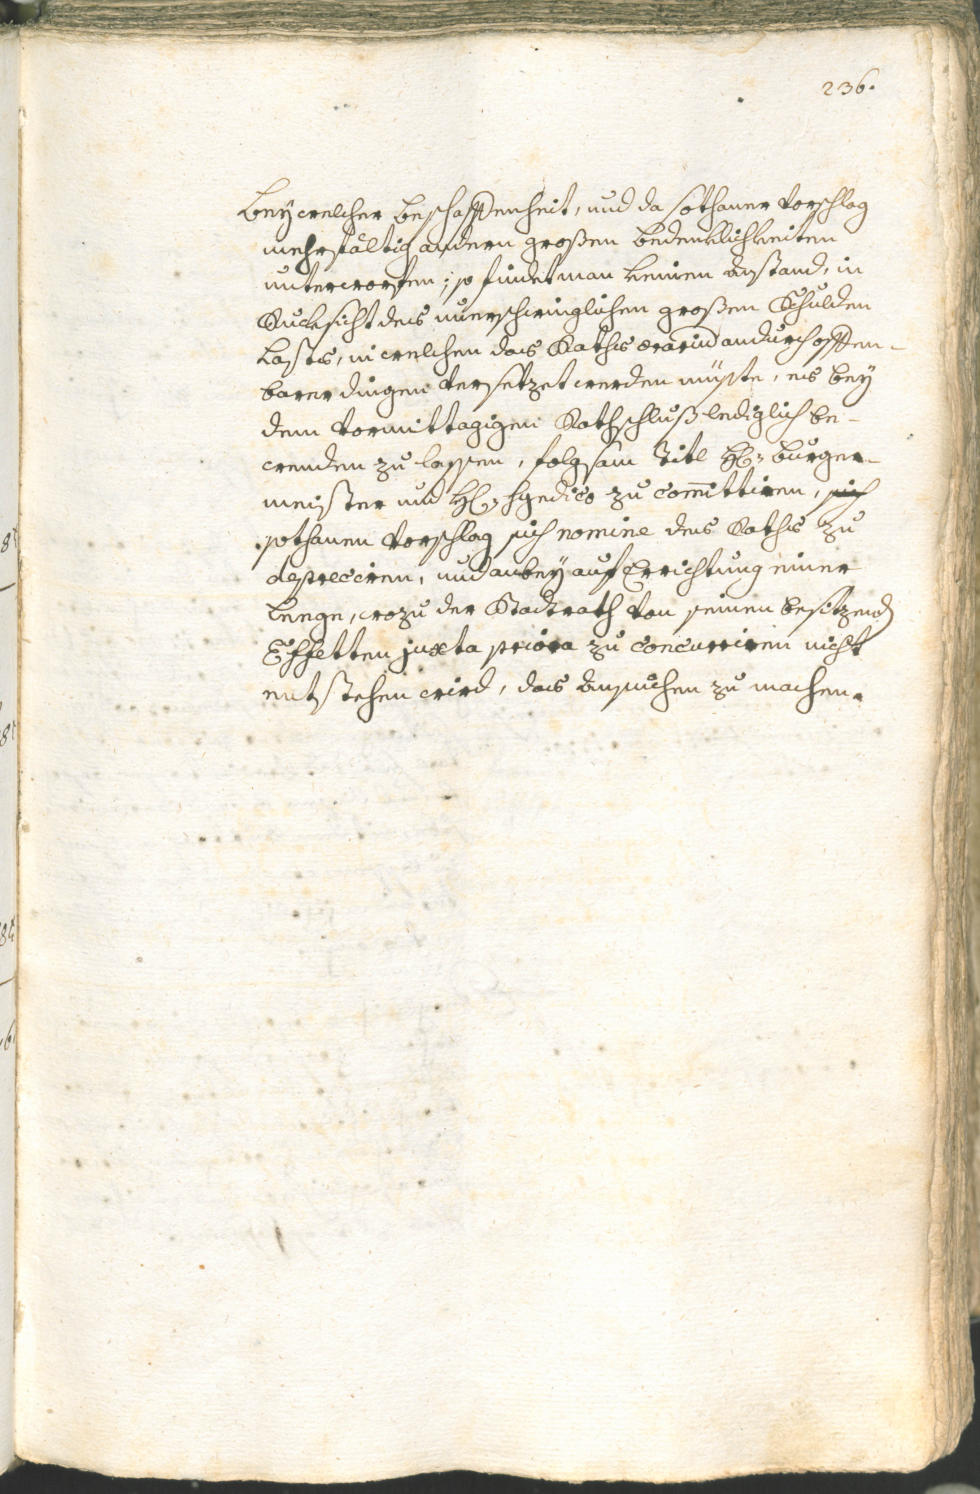 236.
Bey welcher beschaffenheit, und da sothaner vorschlag
mehrfältig andern großen bedencklichkeiten
unterworfen; so findet man keinen Anstand, in
Rucksicht des unerschwinglichen großen Schulden
Lasts, in welchen das Raths ærarium andurch offen-
barer dingen versetzet werden müste, es bey
dem vormittägigen Rathschluß lediglich be-
wenden zu lassen, folgsam Titl H: Burger-
meister und H: Syndico zu com̅ittiren, sich
sothanen Vorschlag sich nomine des Raths zu
depreciren, und anbey auf Errichtung einer
, wozu der Stadtrath von seinen besitzend
Effetten juxta priora zu concurriren nicht
entstehen wird, das Ansuchen zu machen.
8
8
6